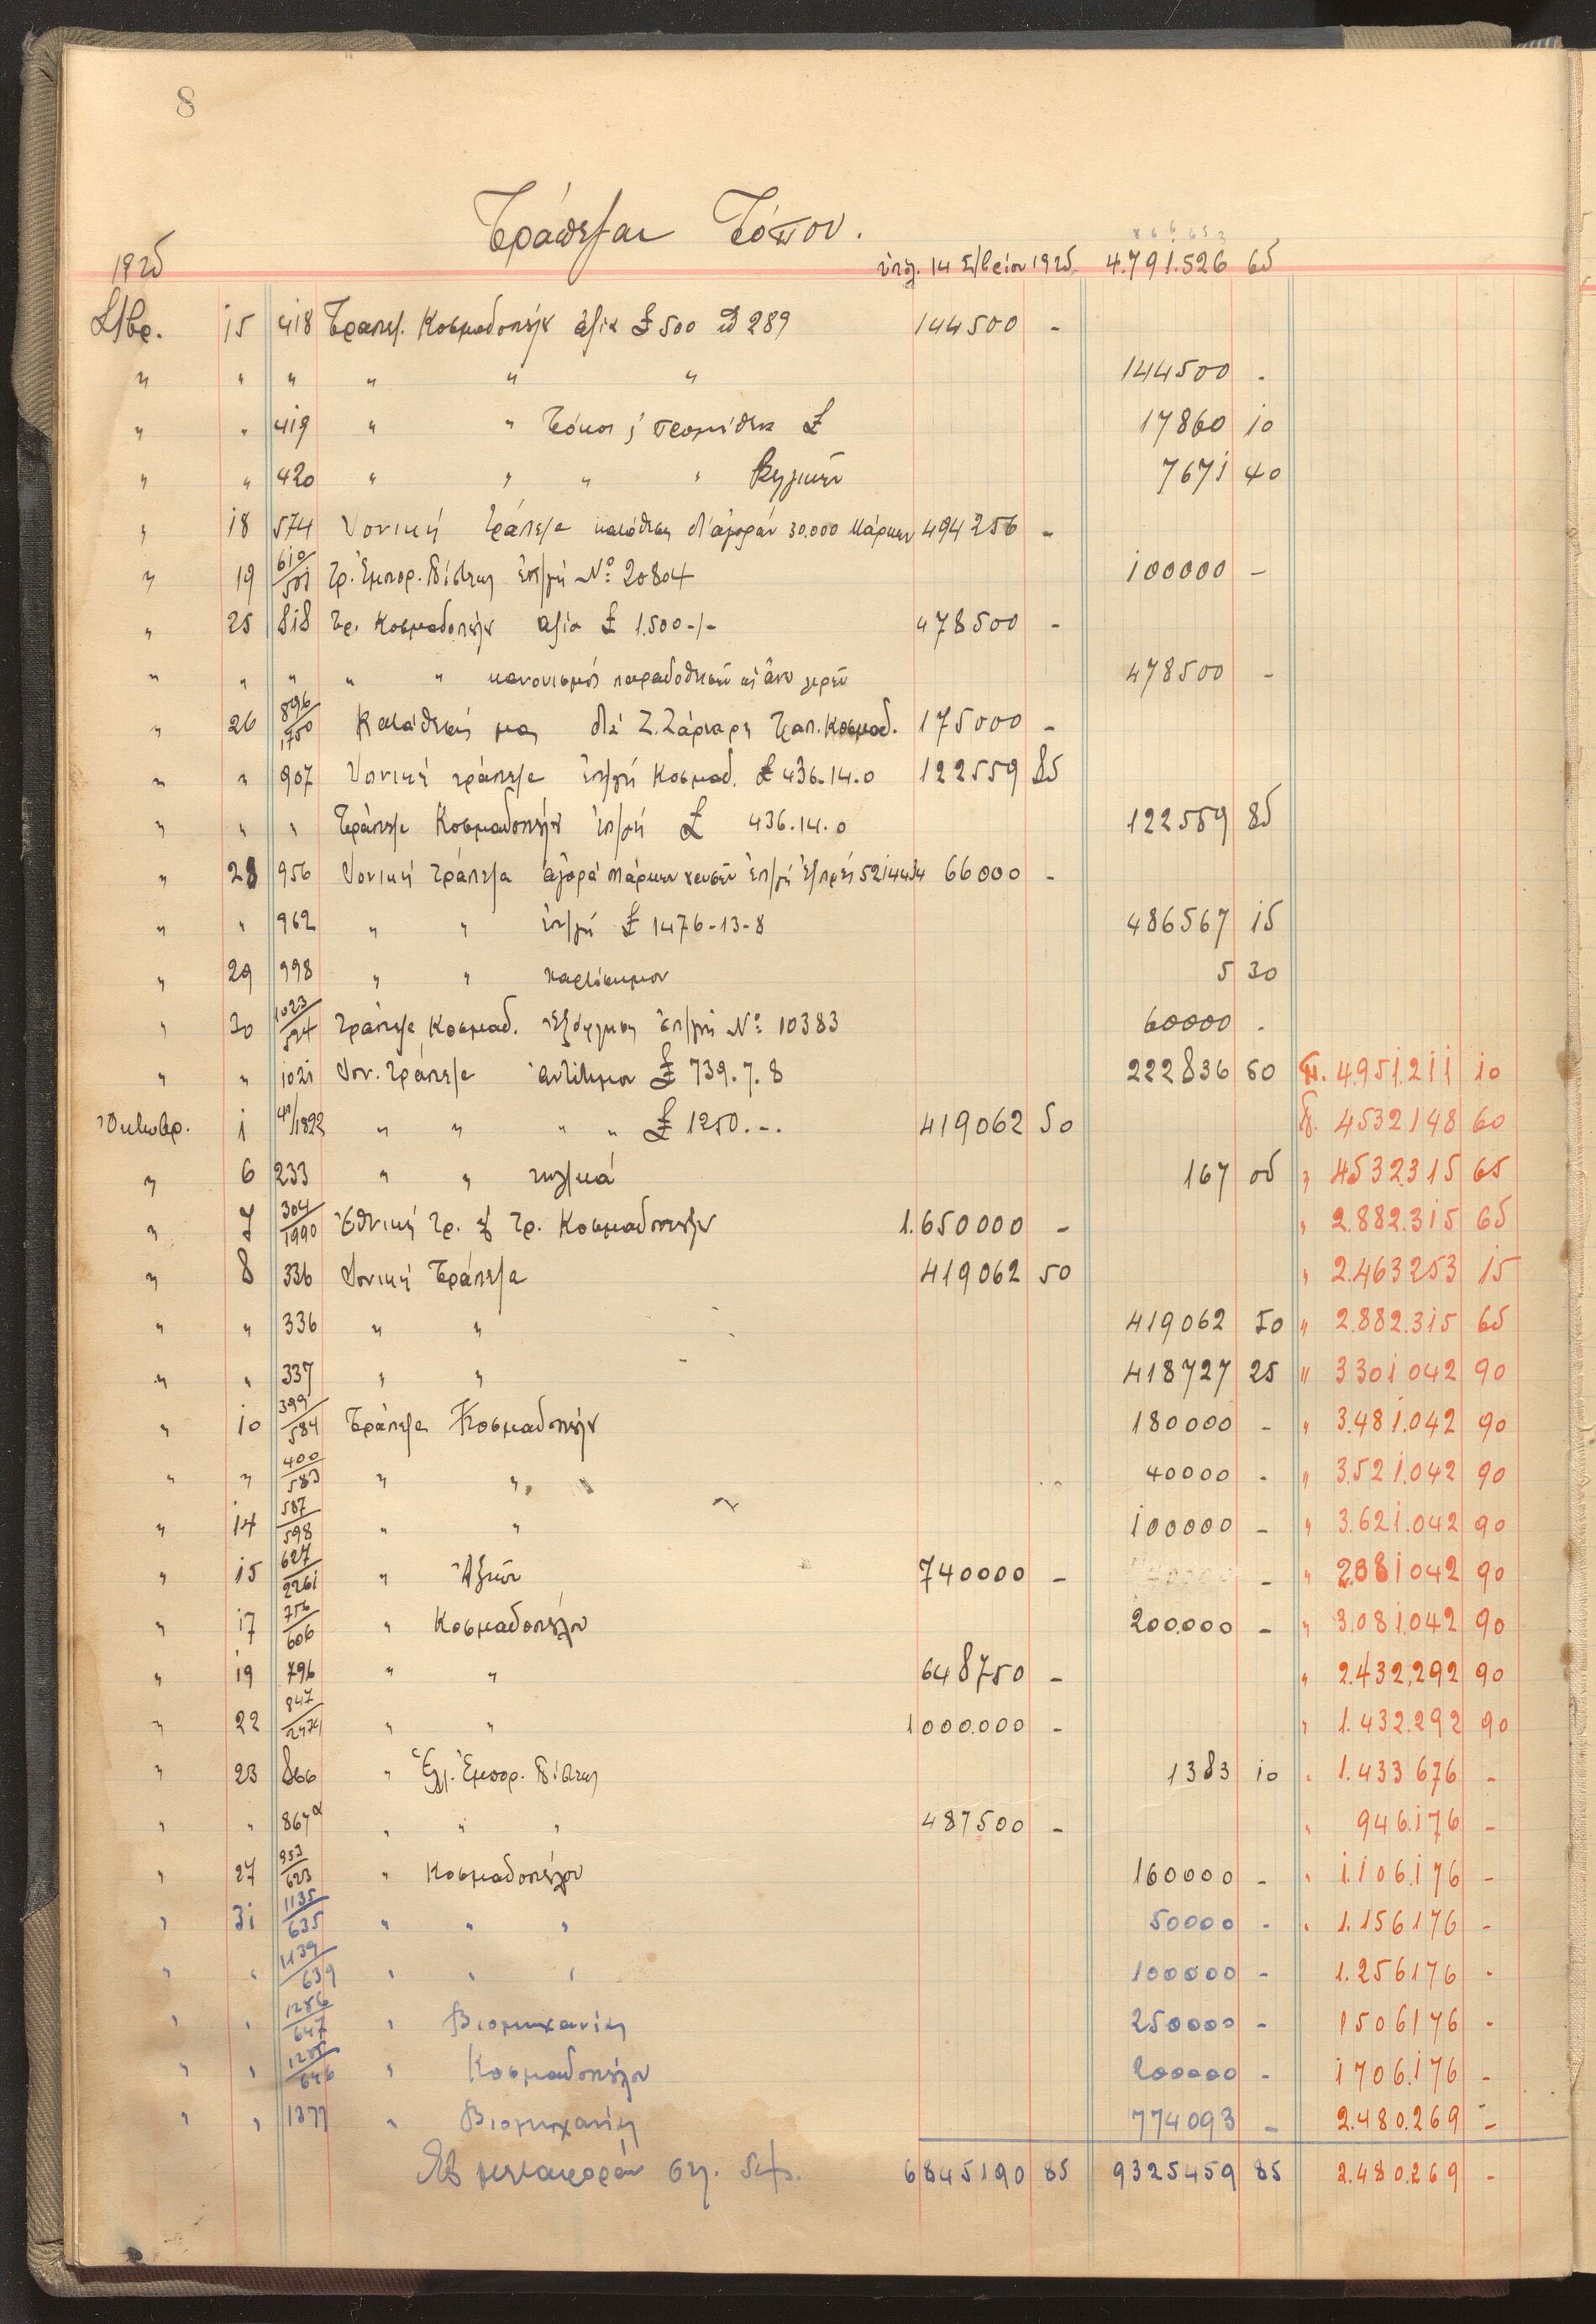 8
Τράπεζαι Τόπου.
1925 ὑπόλ. 14 Σ/βρίου 1925. 4.791.526 65
Σ/βρ. 15 418 Τραπεζ. Κοσμαδοπούλου ἀξία £ 500 289 144500 -
" " " " " " 144500 -
" " 419 " " Τόκοι £ 17860 10
" " 420 " " " " 7671 40
" 18 574 Ἰονική Τράπεζα κατάθεσις δι' ἀγοράν 30.000 Μάρκων 494256 -
" 19 610/501 Τρ. Ἐμπορ. Πίστεως ἐπ/γή Νο: 20804 100000 -
" 25 818 Τρ. Κοσμαδοπούλου ἀξία £ 1.500-/- 478500 -
" " " " " κανονισμός παραδοθεισῶν ὡς ἄνω λιρῶν 478500 -
" 26 896/1750 Κατάθεσίς μας διά Ζ. Τραπ. Κοσμαδ. 175000 -
" " 907 Ἰονική τράπεζα ἐπ/γή Κοσμαδ. £ 436-14-0 122559 85
" " " Τράπεζα Κοσμαδοπούλου ἐπ/γή £ 436.14.0 122559 85
" 28 956 Ἰονική Τράπεζα ἀγορά μάρκων χρυσῶν ἐπ/γή 66000 -
" " 962 " " ἐπ/γή £ 1476-13-8 486567 15
" 29 998 " " χαρτόσημον 5 30
" 30 1023/524 Τράπεζα Κοσμαδ. ἐξόφλησις ἐπ/γή Νο: 10383 60000 -
" " 1021 Ἰον. Τράπεζα ἀντίτιμον £ 739.7.8 222836 50 Π. 4.951.211 10
Ὀκτωβρ. 1 41/1822 " " " " £ 1250.-. 419062 50 Π. 4532148 60
" 6 233 " " 167 05 " 4532315 65
" 7 304/1990 Ἐθνική Τρ. Τρ. Κοσμαδοπούλου 1.650000 - " 2.882.315 65
" 8 336 Ἰονική Τράπεζα 419062 50 " 2.463253 15
" " 336 " " 419062 50 " 2.882.315 65
" " 337 " " 418727 25 " 3301042 90
" 10 399/584 Τράπεζα Κοσμαδοπούλου 180000 - " 3.481.042 90
" " 400/583 " " 40000 - " 3.521.042 90
" 14 587/598 " " 100000 - " 3.621.042 90
" 15 627/2261 " Ἀξιῶν 740000 - - " 2.881042 90
" 17 756/606 " Κοσμαδοπούλου 200.000 - " 3.081.042 90
" 19 796 " " 648750 - " 2.432,292 90
" 22 847/2474 " " 1000.000 - " 1.432.292 90
" 23 866 " Ἑλλ. Ἐμπορ. Πίστεως 1383 10 " 1.433676 -
" " 867α " " " 487500 - " 946.176 -
" 27 953/623 " Κοσμαδοπούλου 160000 - " 1.106.176 -
" 31 1135/635 " " " 50000 - " 1.156176 -
" " 1139/639 " " " 100000 - 1.256176 -
" " 1256/647 " Βιομηχανίας 250000 - 1506176 -
" " " Κοσμαδοπούλου 200000 - 1706.176 -
" " 1377 " Βιομηχανίας 774093 - 2.480.269 -
Εἰς μεταφοράν 6845190 85 9325459 85 2.480.269 -